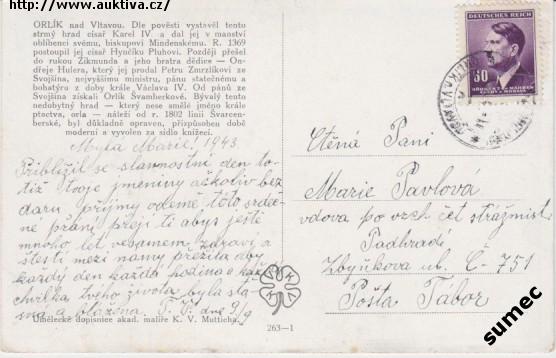 http://www.auktiva.cz/
ORLÍK nad Vltavou. Dle pověsti vystavěl tento
strmý hrad císař Karel IV. a dal jej v manství
oblíbenci svému, biskupovi Mindenskému. R. 1369
postoupil jej císař Hynčíku Pluhovi. Později přešel
do rukou Zikmunda a jeho bratra dědice — On-
dřeje Hulera, který jej prodal Petru Zmrzlíkovi ze
Svojšína, nejvyššímu ministru, pánu statečnému a
bohatýru z doby krále Václava IV. Od pánů ze
Svojšína získali Orlík Švamberkové. Bývalý tento
nedobytný hrad — který nese smělé jméno krále
ptactva, orla — náleží od r. 1802 linii Svarcen-
berské, byl důkladně opraven, přizpůsoben době
moderní a vyvolen za sídlo knížecí.
DEUTSCHES REICH
60
Milá Marie! 1943
Přiblížil se slavnostní den to-
tiž tvoje jmeniny ačkoliv bez
daru, přijmy odemě tóto srdeč-
né přání přeji ti abys ještě
mnoho let ve zdraví a
štěstí mezi námy prežila aby
každý den každá hodina a každá
chvilka tvého života byla
a blažena. F. V. dne 9/9
Ctěná Paní
Marie Pavlová
vdova po vrch čet strážmist
Padhradí
Zbyňkova ul. Č-751
Pošta Tábor
Umělecké dopisnice akad. malíře K. V. Mutticha.
263—1
sumec